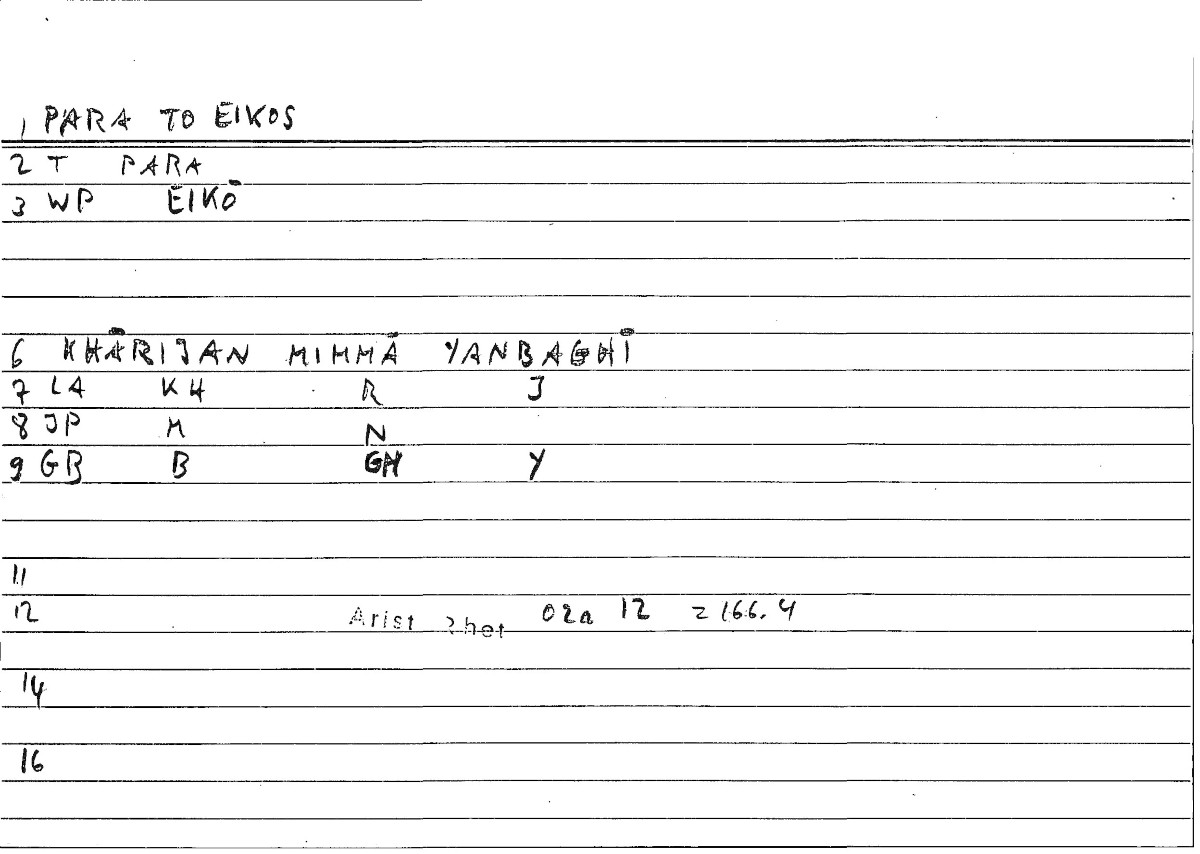 1 PARA TO EIKOS
2 T PARA
3 WP EIKŌ
6 KHĀRIJAN MIMMĀ YANBAGHĪ
7 LA KH R J
8 JP M N
9 GB B GH Y
11
12 Arist Rhet 02a 12 = 166.4
14
16